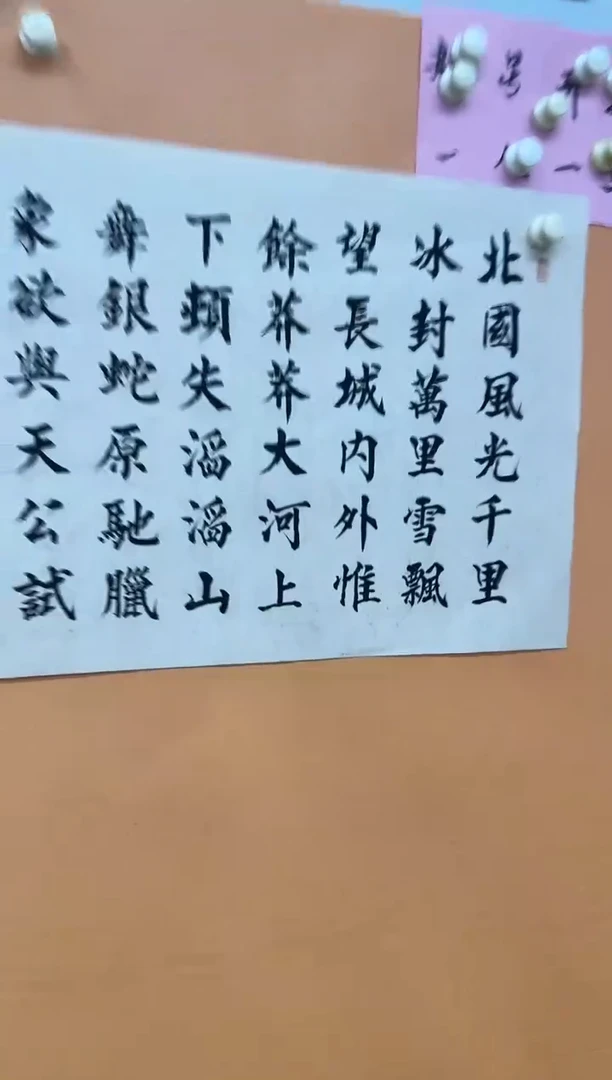 北國風光千里
冰封萬里雪飄
望長城内外惟
餘莽莽大河上
下頓失滔滔山
舞銀蛇原馳臘
象欲與天公試